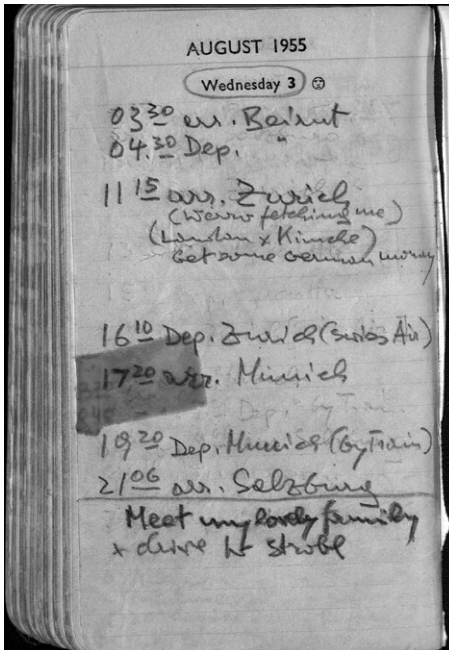 AUGUST 1955
Wednesday 3
03 30 arr. Beirut
04.30 Dep. "
11 15 arr. Zurich
(Werner fetching me)
(London + Kimche)
Get some German money
16 10 Dep. Zurich (Swiss Air)
17 20 arr. Munich
Dep. by Train
19 20 Dep. Munich (by Train)
21 06 arr. Salzburg
Meet my lovely family
+ drive to Strobl